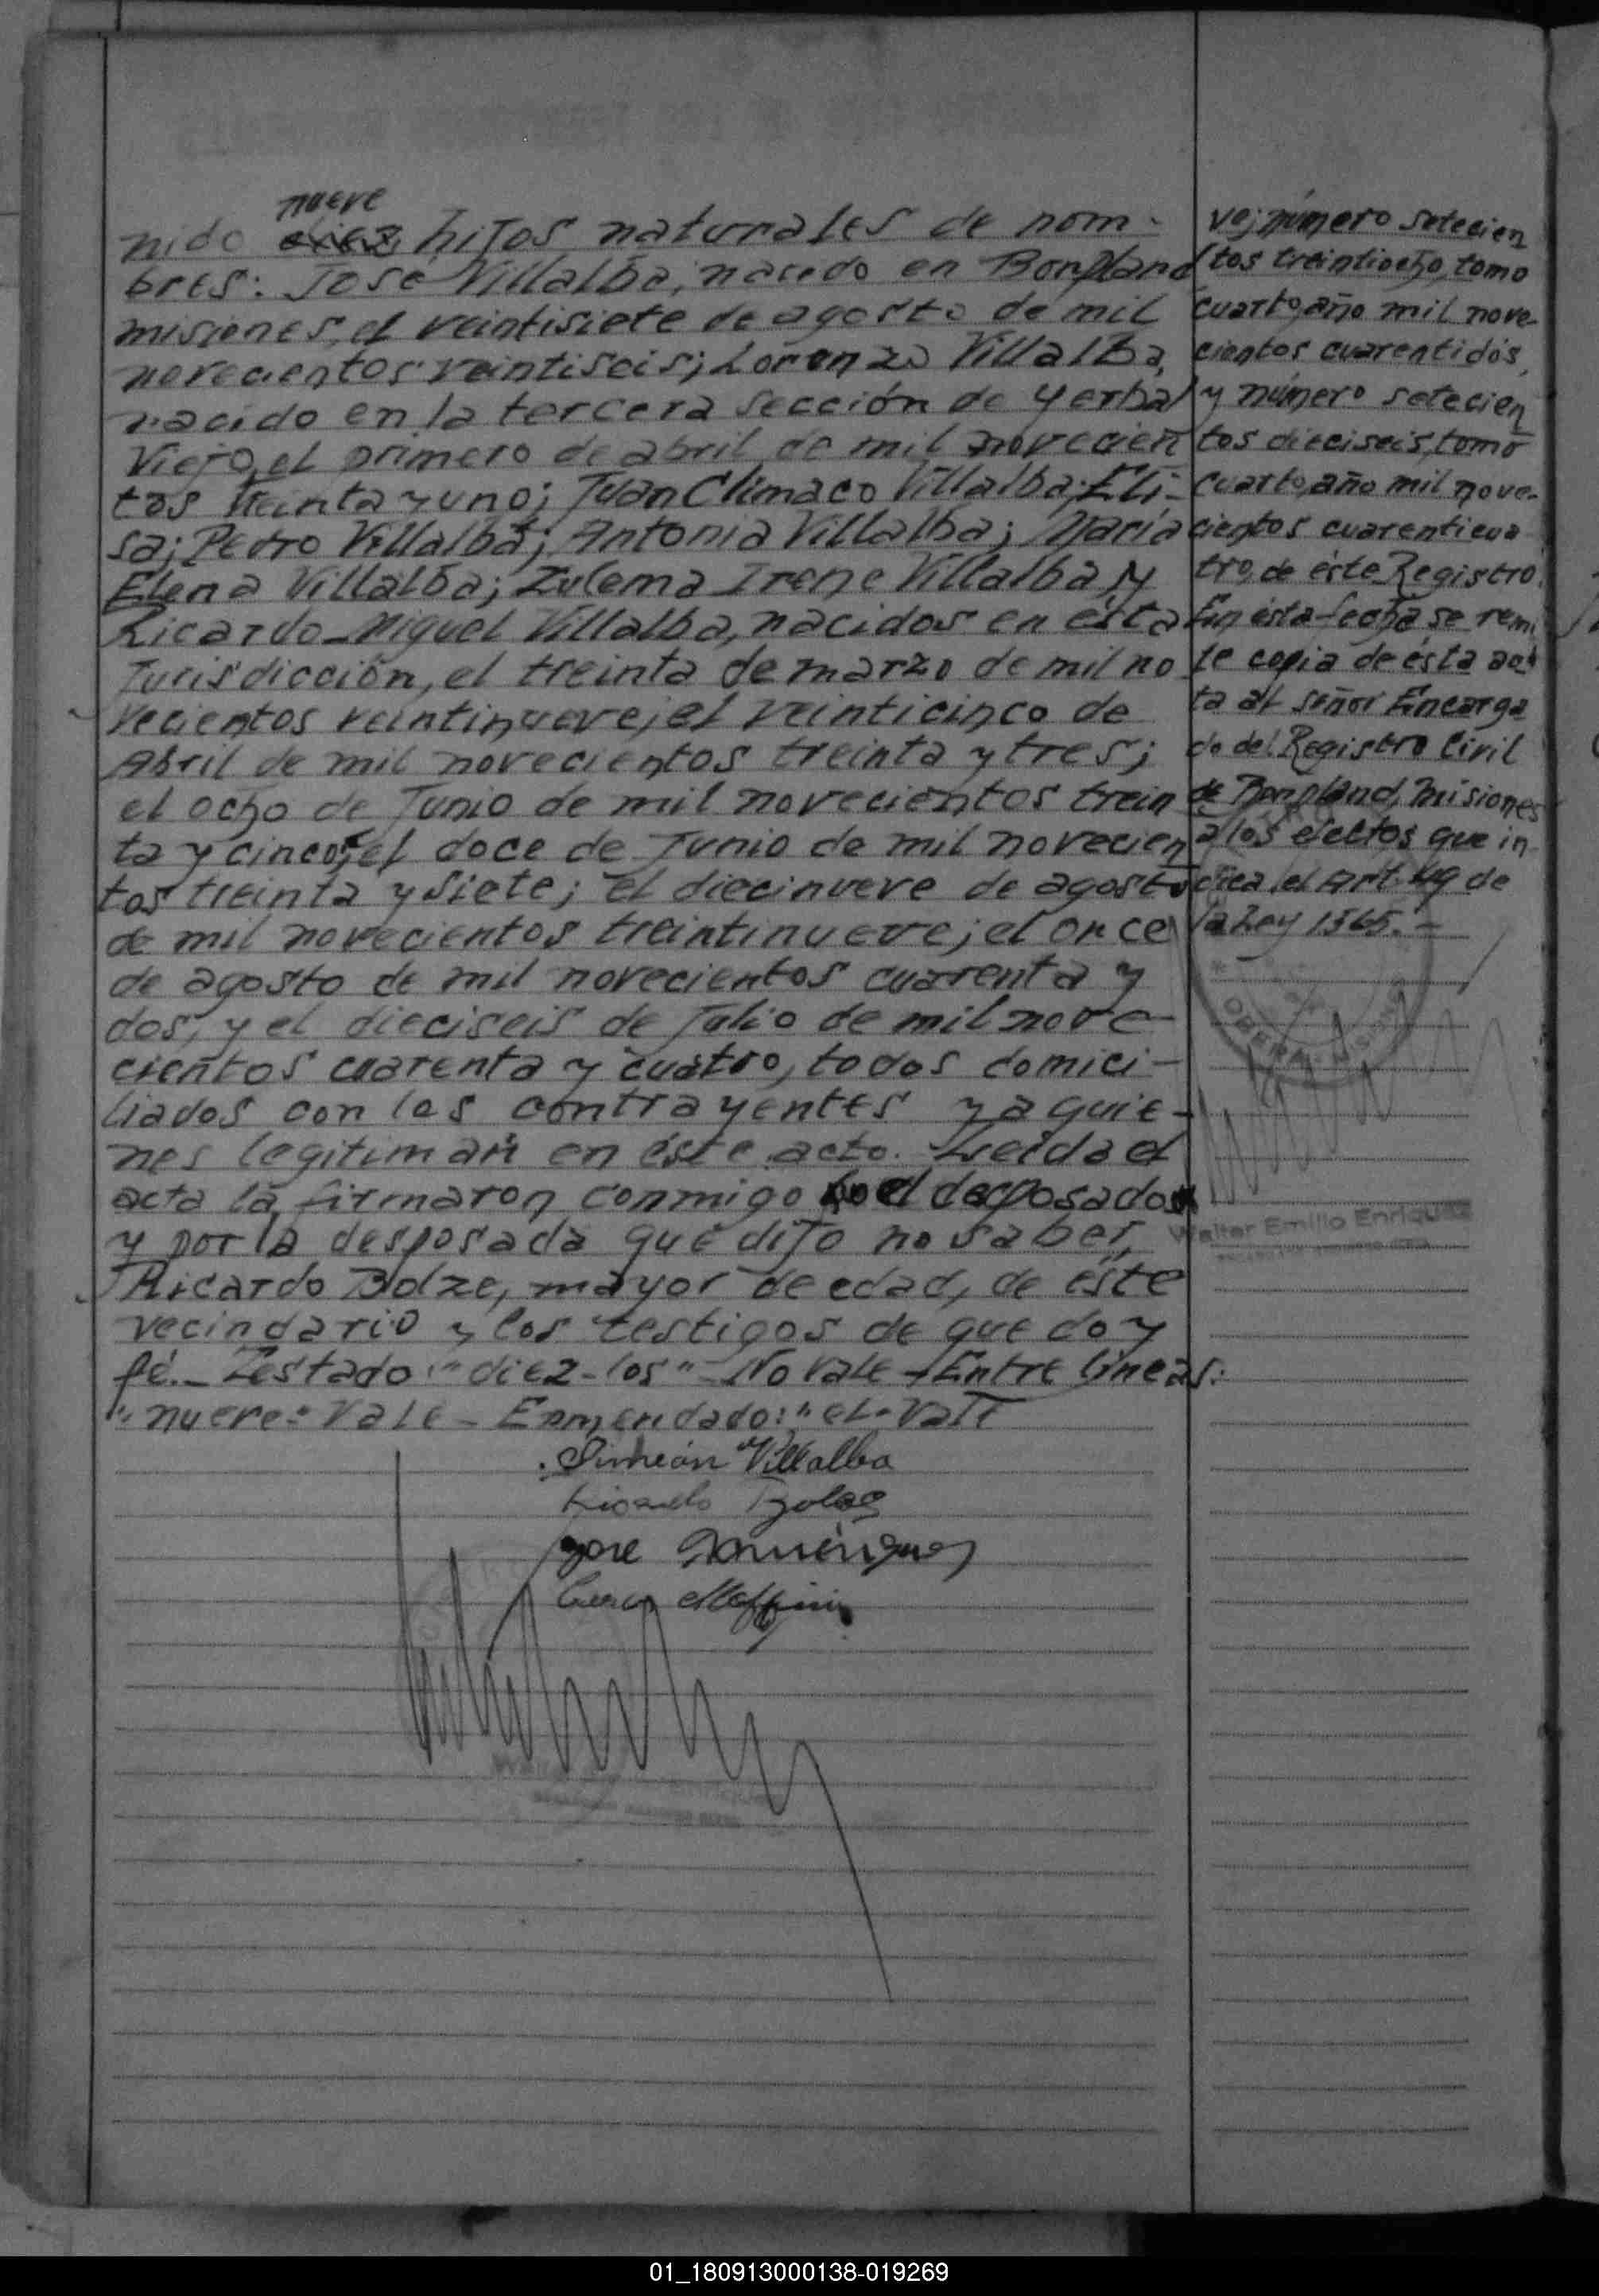 nueve
nido diez hijos naturales de nom-
bres: José Villalba, nacido en Bonpland
misiones, el veintisiete de agosto de mil
novecientos veintiseis; Lorenzo Villalba,
nacido en la tercera sección de Yerbal
Viejo, el primero de abril de mil novecien
tos treinta y uno; Juan Climaco Villalba; Eli-
sa; Pedro Villalba; Antonia Villalba; María
Elena Villalba; Zulema Irene Villalba, y
Ricardo Miguel Villalba, nacidos en ésta
Jurisdicción, el treinta de marzo de mil no
vecientos veintinueve; el veinticinco de
Abril de mil novecientos treinta y tres;
el ocho de Junio de mil novecientos trein
ta y cinco; el doce de Junio de mil novecien
tos treinta y siete; el diecinueve de agosto
de mil novecientos treintinueve; el once
de agosto de mil novecientos cuarenta y
dos, y el dieciseis de Julio de mil nove-
cientos cuarenta y cuatro, todos domici-
liados con los contrayentes y a quie-
nes legitiman en éste acto. Leída el
acta la firmaron conmigo el desposado
y por la desposada que dijo no saber,
Ricardo Bolze, mayor de edad, de éste
vecindario y los testigos de que doy
fé.- Testado: "diez-los" - No vale - Entre líneas:
"nueve" Vale - Enmendado: "el" Vale
Simeón Villalba
Ricardo Bolze
José
vej número setecien
tos treintiocho, tomo
cuarto, año mil nove-
cientos cuarentidós,
y número setecien
tos dieciseis, tomo
cuarto, año mil nove-
cientos cuarenticua
tro, de éste Registro.
En ésta fecha se remi
te copia de ésta ac
ta al señor Encarga
do del Registro Civil
de Bonpland, Misiones
a los efectos que in
dica el Art. 49 de
la Ley 1565.-
OBERA - MISIONES
Walter Emilio Enriquez
01_180913000138-019269